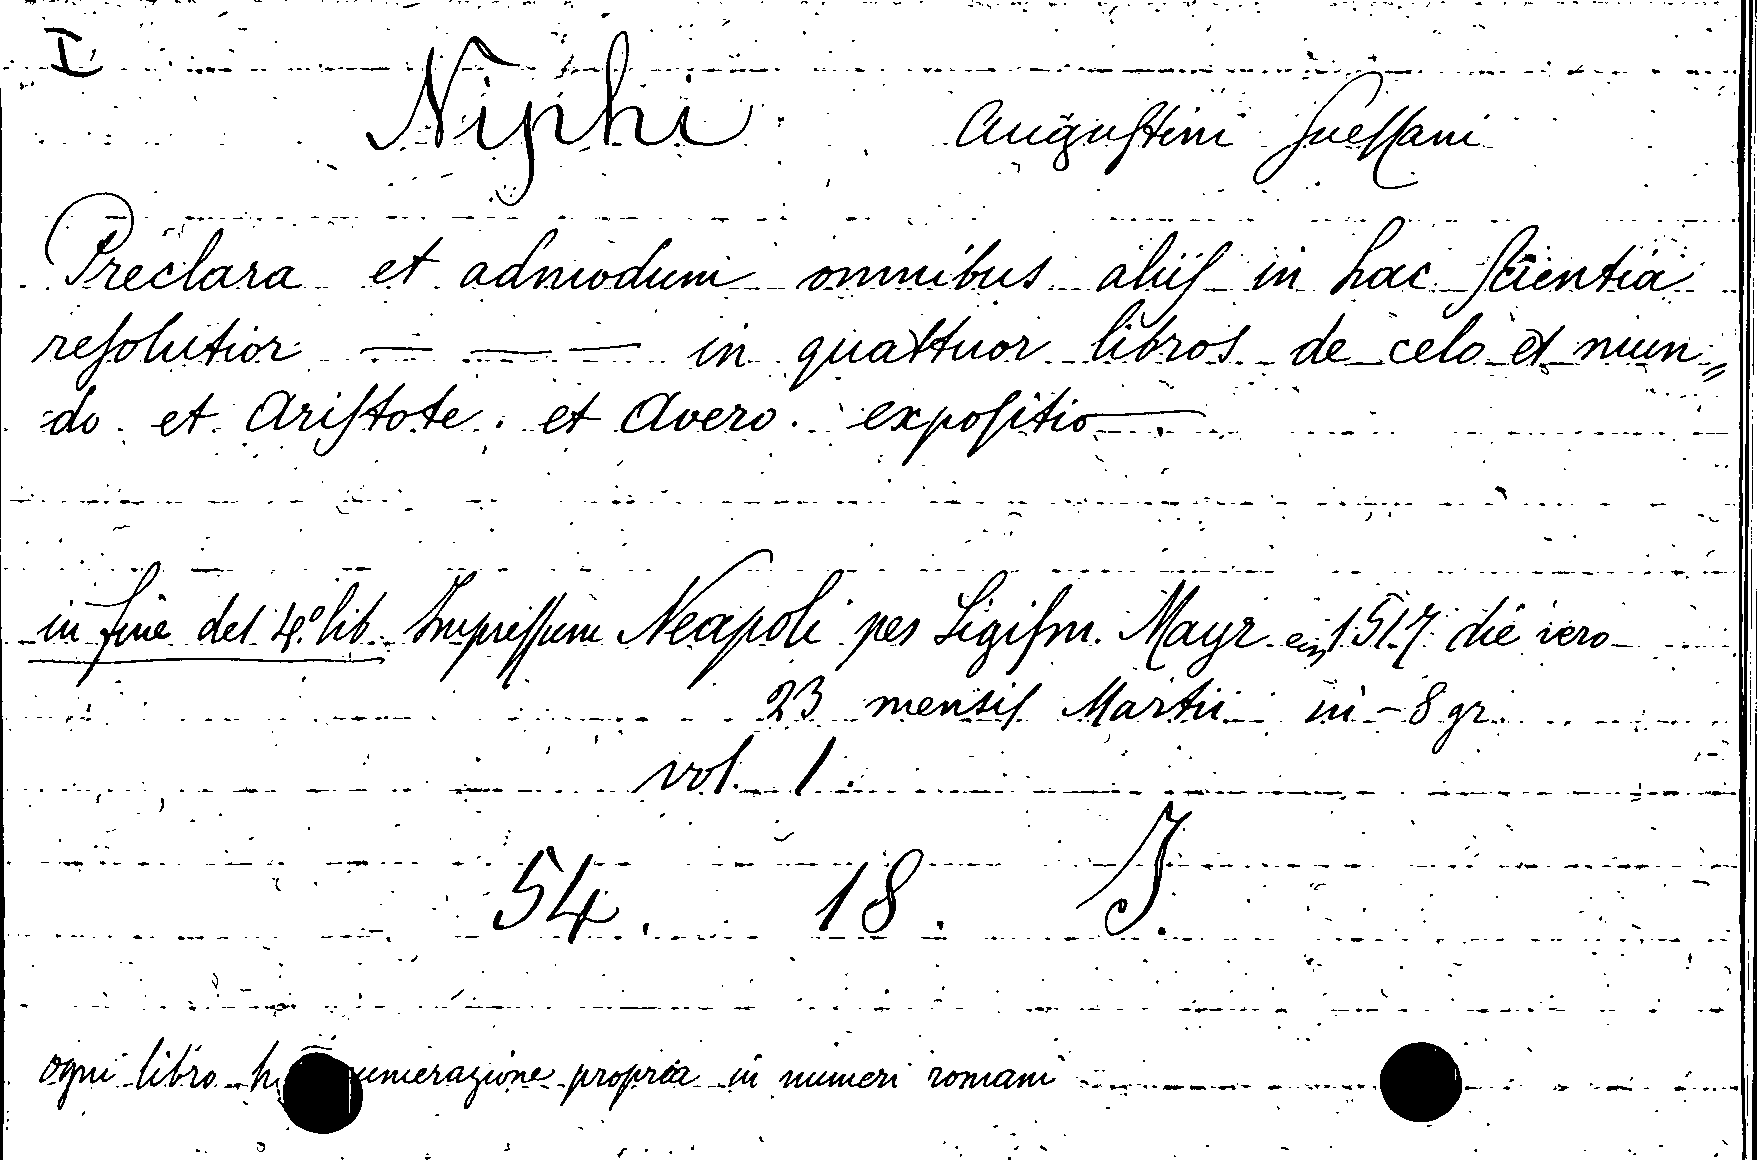 I
Niphi Auguſtini Sueſſani
Preclara et admodum omnibus aliiſ in hac ſcientia
reſolutior — — — in quattuor libros de celo et mun„
do et Ariſtote. et Avero. expoſitio—
in fine del 4.º lib. Impreſſum Neapoli per Sigiſm. Mayr 1517 die vero
23 mensiſ Martii in-8 gr.
vol. 1.
54. 18. J.
ogni libro umerazione propria in numeri romani